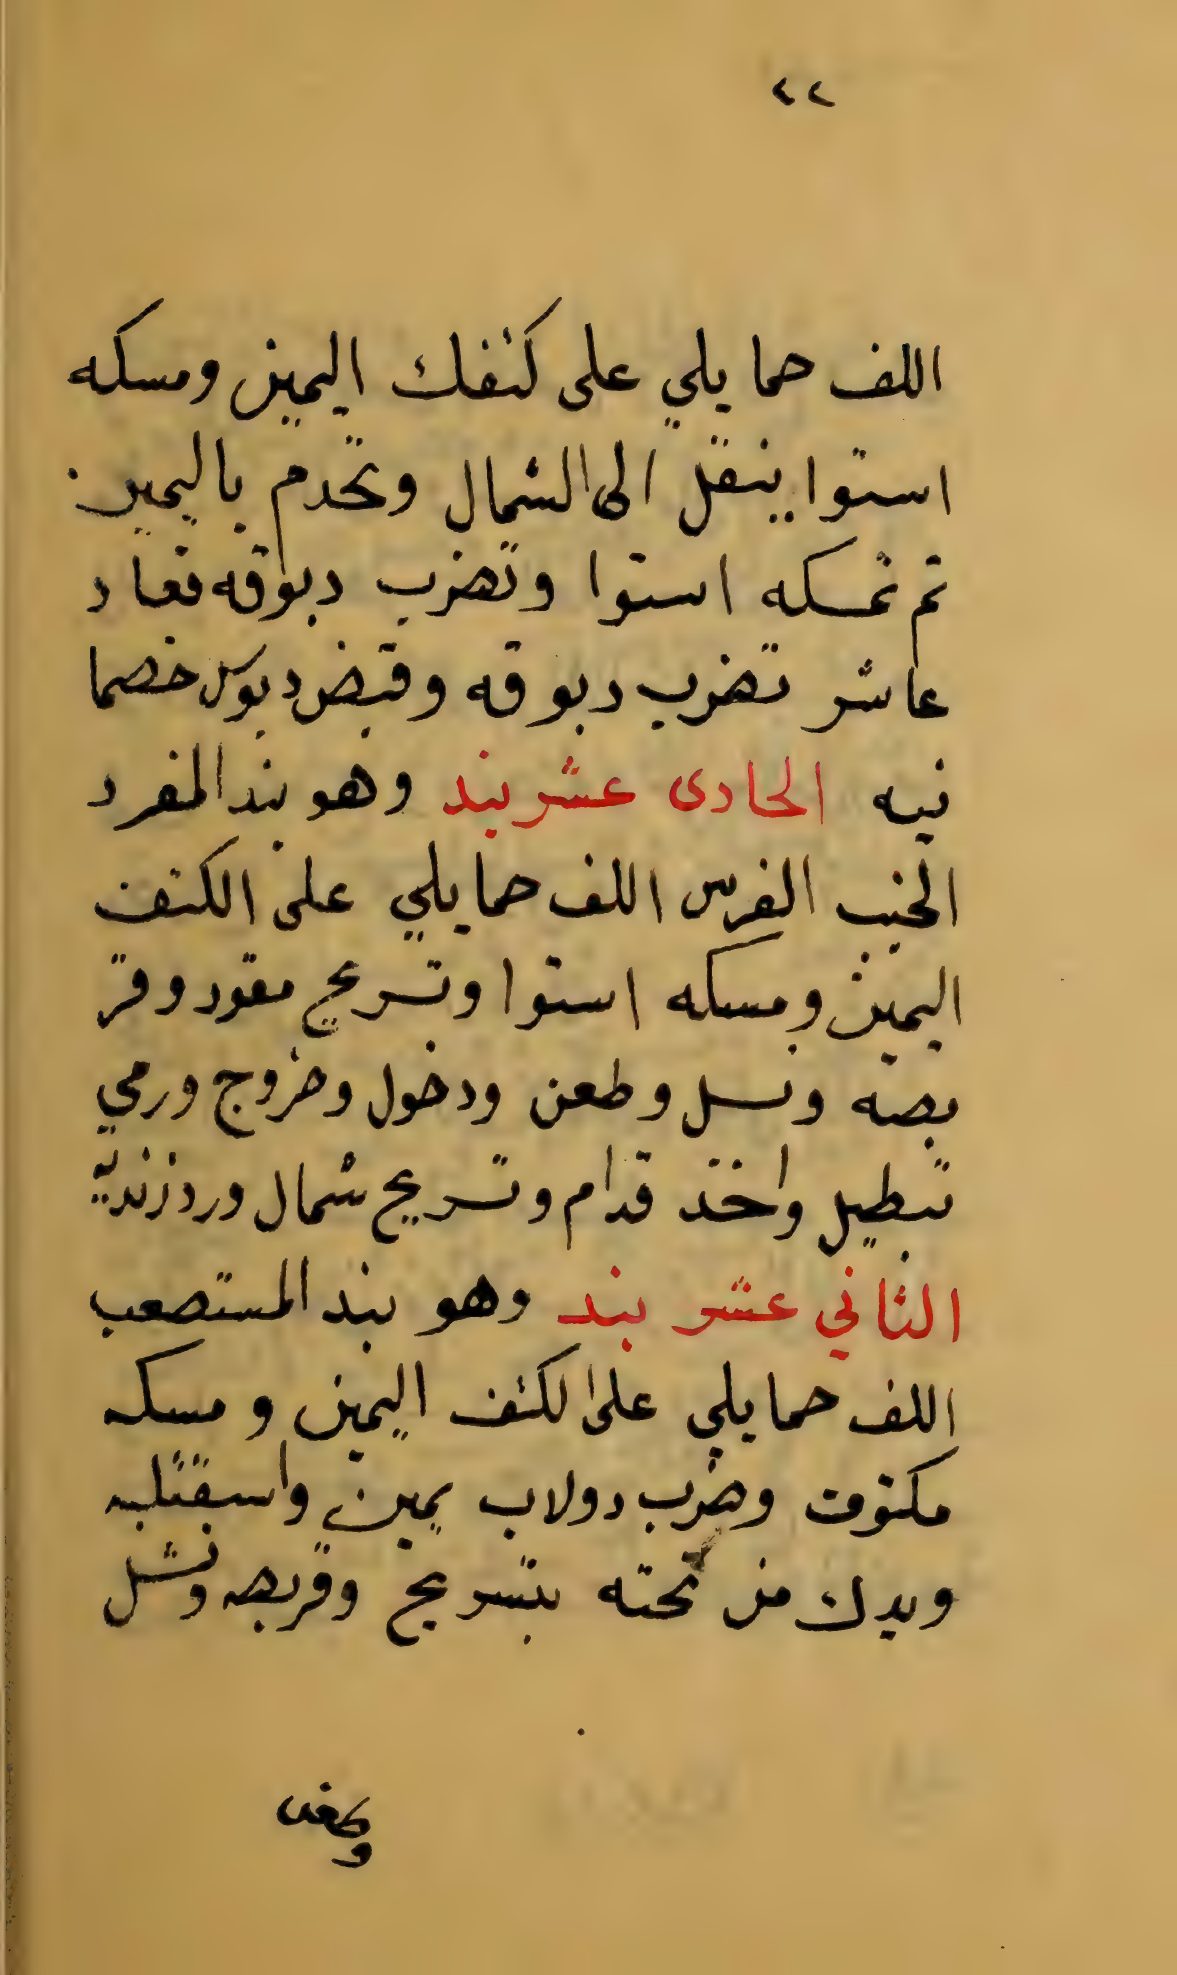 ٤٢
اللف حمايلي على كتفك اليمين ومسكه
استوا ينقل الى الشمال وتخدم باليمين
ثم تمسكه استوا وتضرب دبوقه فعاد
عاشر تضرب دبوقه وقبض دبوس خصما
فيه الحادى عشر بند وهو بند المفرد
الجنب الفرس اللف حمايلي على الكتف
اليمين ومسكه استوا وتسريح مقود وقر
بصه ونسل وطعن ودخول وخروج ورمي
تبطيل واخذ قدام وتسريح شمال ورد زندية
الثاني عشر بند وهو بند المستصعب
اللف حمايلي على الكتف اليمين ومسكه
مكتوف وضرب دولاب يمين واستقتلبه
ويدك من تحته بتسريح وقربصه ونشل